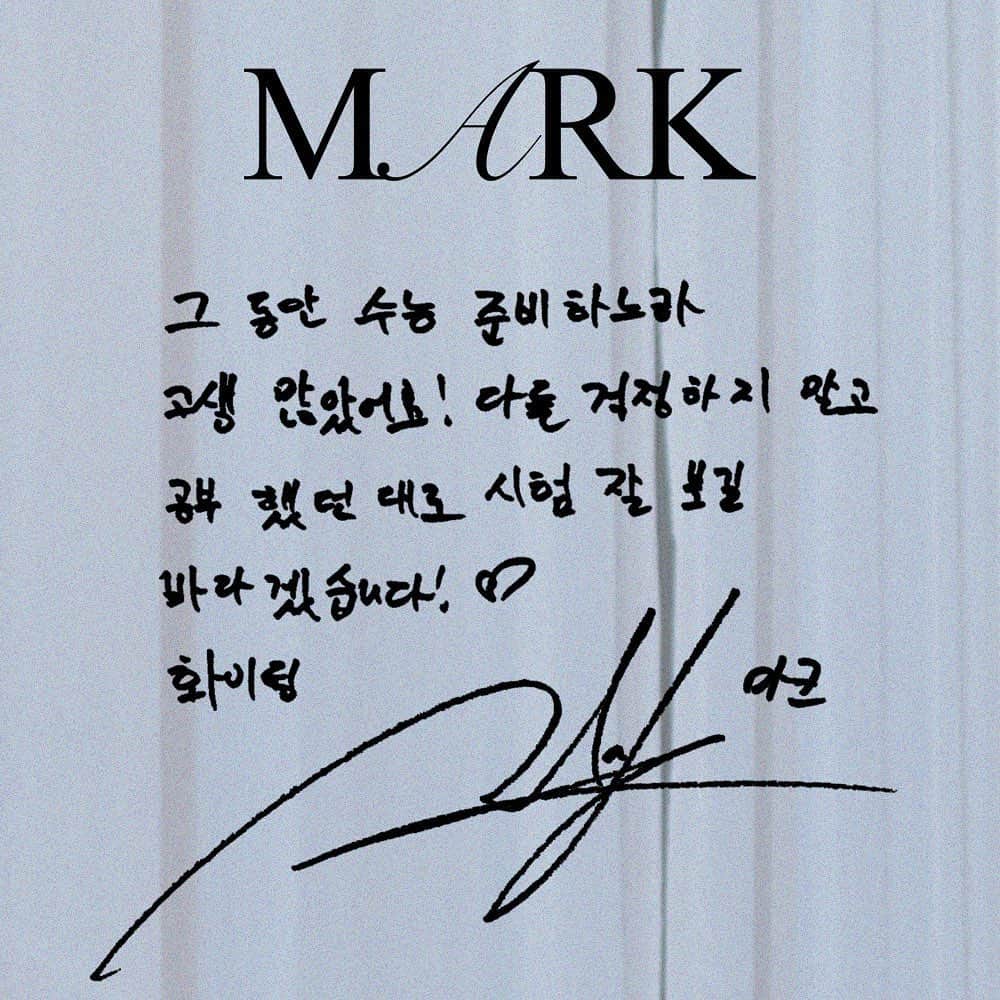 MARK
그 동안 수능 준비하느라
고생 많았어요! 다들 걱정하지 말고
공부 했던 대로 시험 잘 보길
바라겠습니다! ♡
화이팅
마크